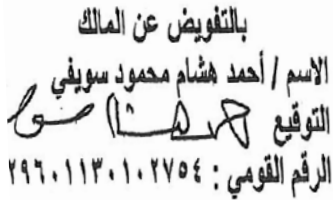 بالتفويض عن المالك
الاسم / أحمد هشام محمود سويفي
التوقيع
الرقم القومي : ٢٩٦٠١١٣٠١٠٢٧٥٤